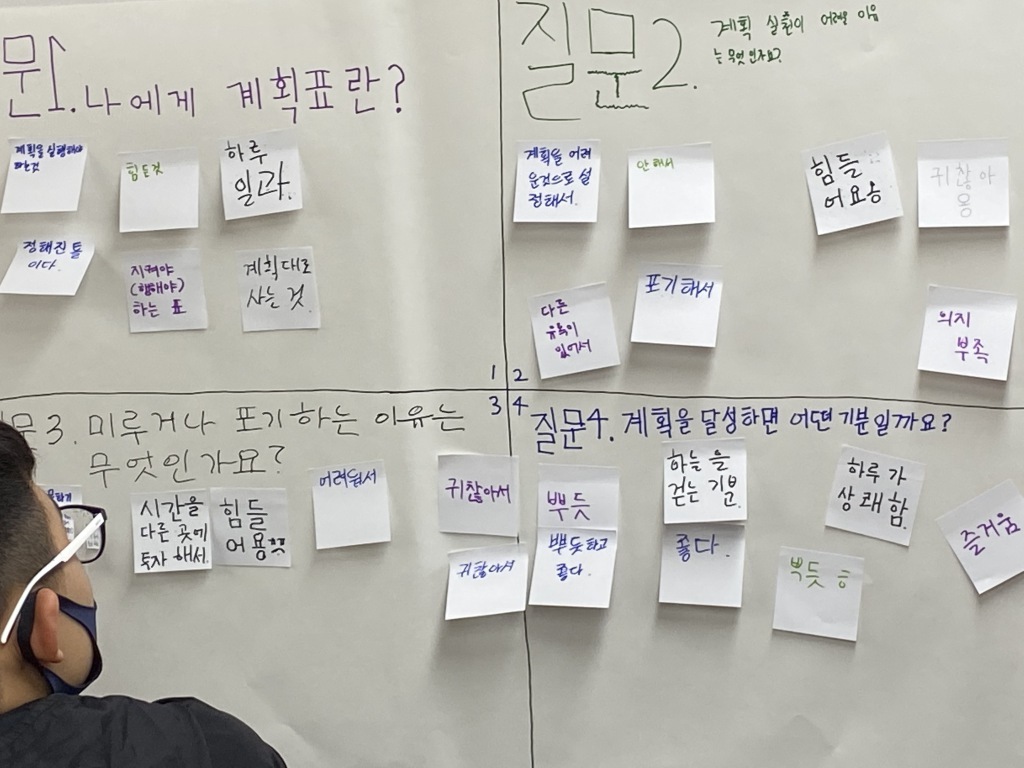 문1. 나에게 계획표란?
계획을 실행해야
하는것
힘든것
하루
일과.
정해진 틀
이다.
지켜야
(행해야)
하는 표
계획대로
사는 것.
질문2.
계획 실천이 어려운 이유
는 무엇인가요?
계획을 어려
운것으로 설
정해서.
안해서
힘들
어요
귀찮아
용
다른
유혹이
있어서
포기해서
의지
부족
1 2
3 4
문3. 미루거나 포기하는 이유는
무엇인가요?
시간을
다른 곳에
투자 해서.
힘들
어용
어려워서
귀찮아서
귀찮아서
질문4. 계획을 달성하면 어떤 기분일까요?
뿌듯
뿌듯하고
좋다.
하늘을
걷는 기분.
좋다.
하루가
상쾌함.
뿌듯 ㅎ
즐거움